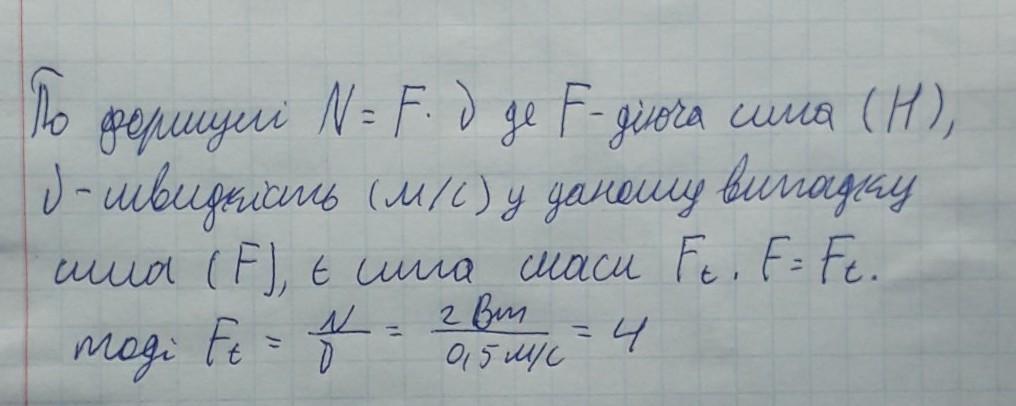 По формулі N = F · υ де F - діюча сила (Н),
υ - швидкість (м/с) у даному випадку
сила (F), є сила маси Fₜ. F = Fₜ.
тоді Fₜ = N/υ = 2 Вт/0,5 м/с = 4